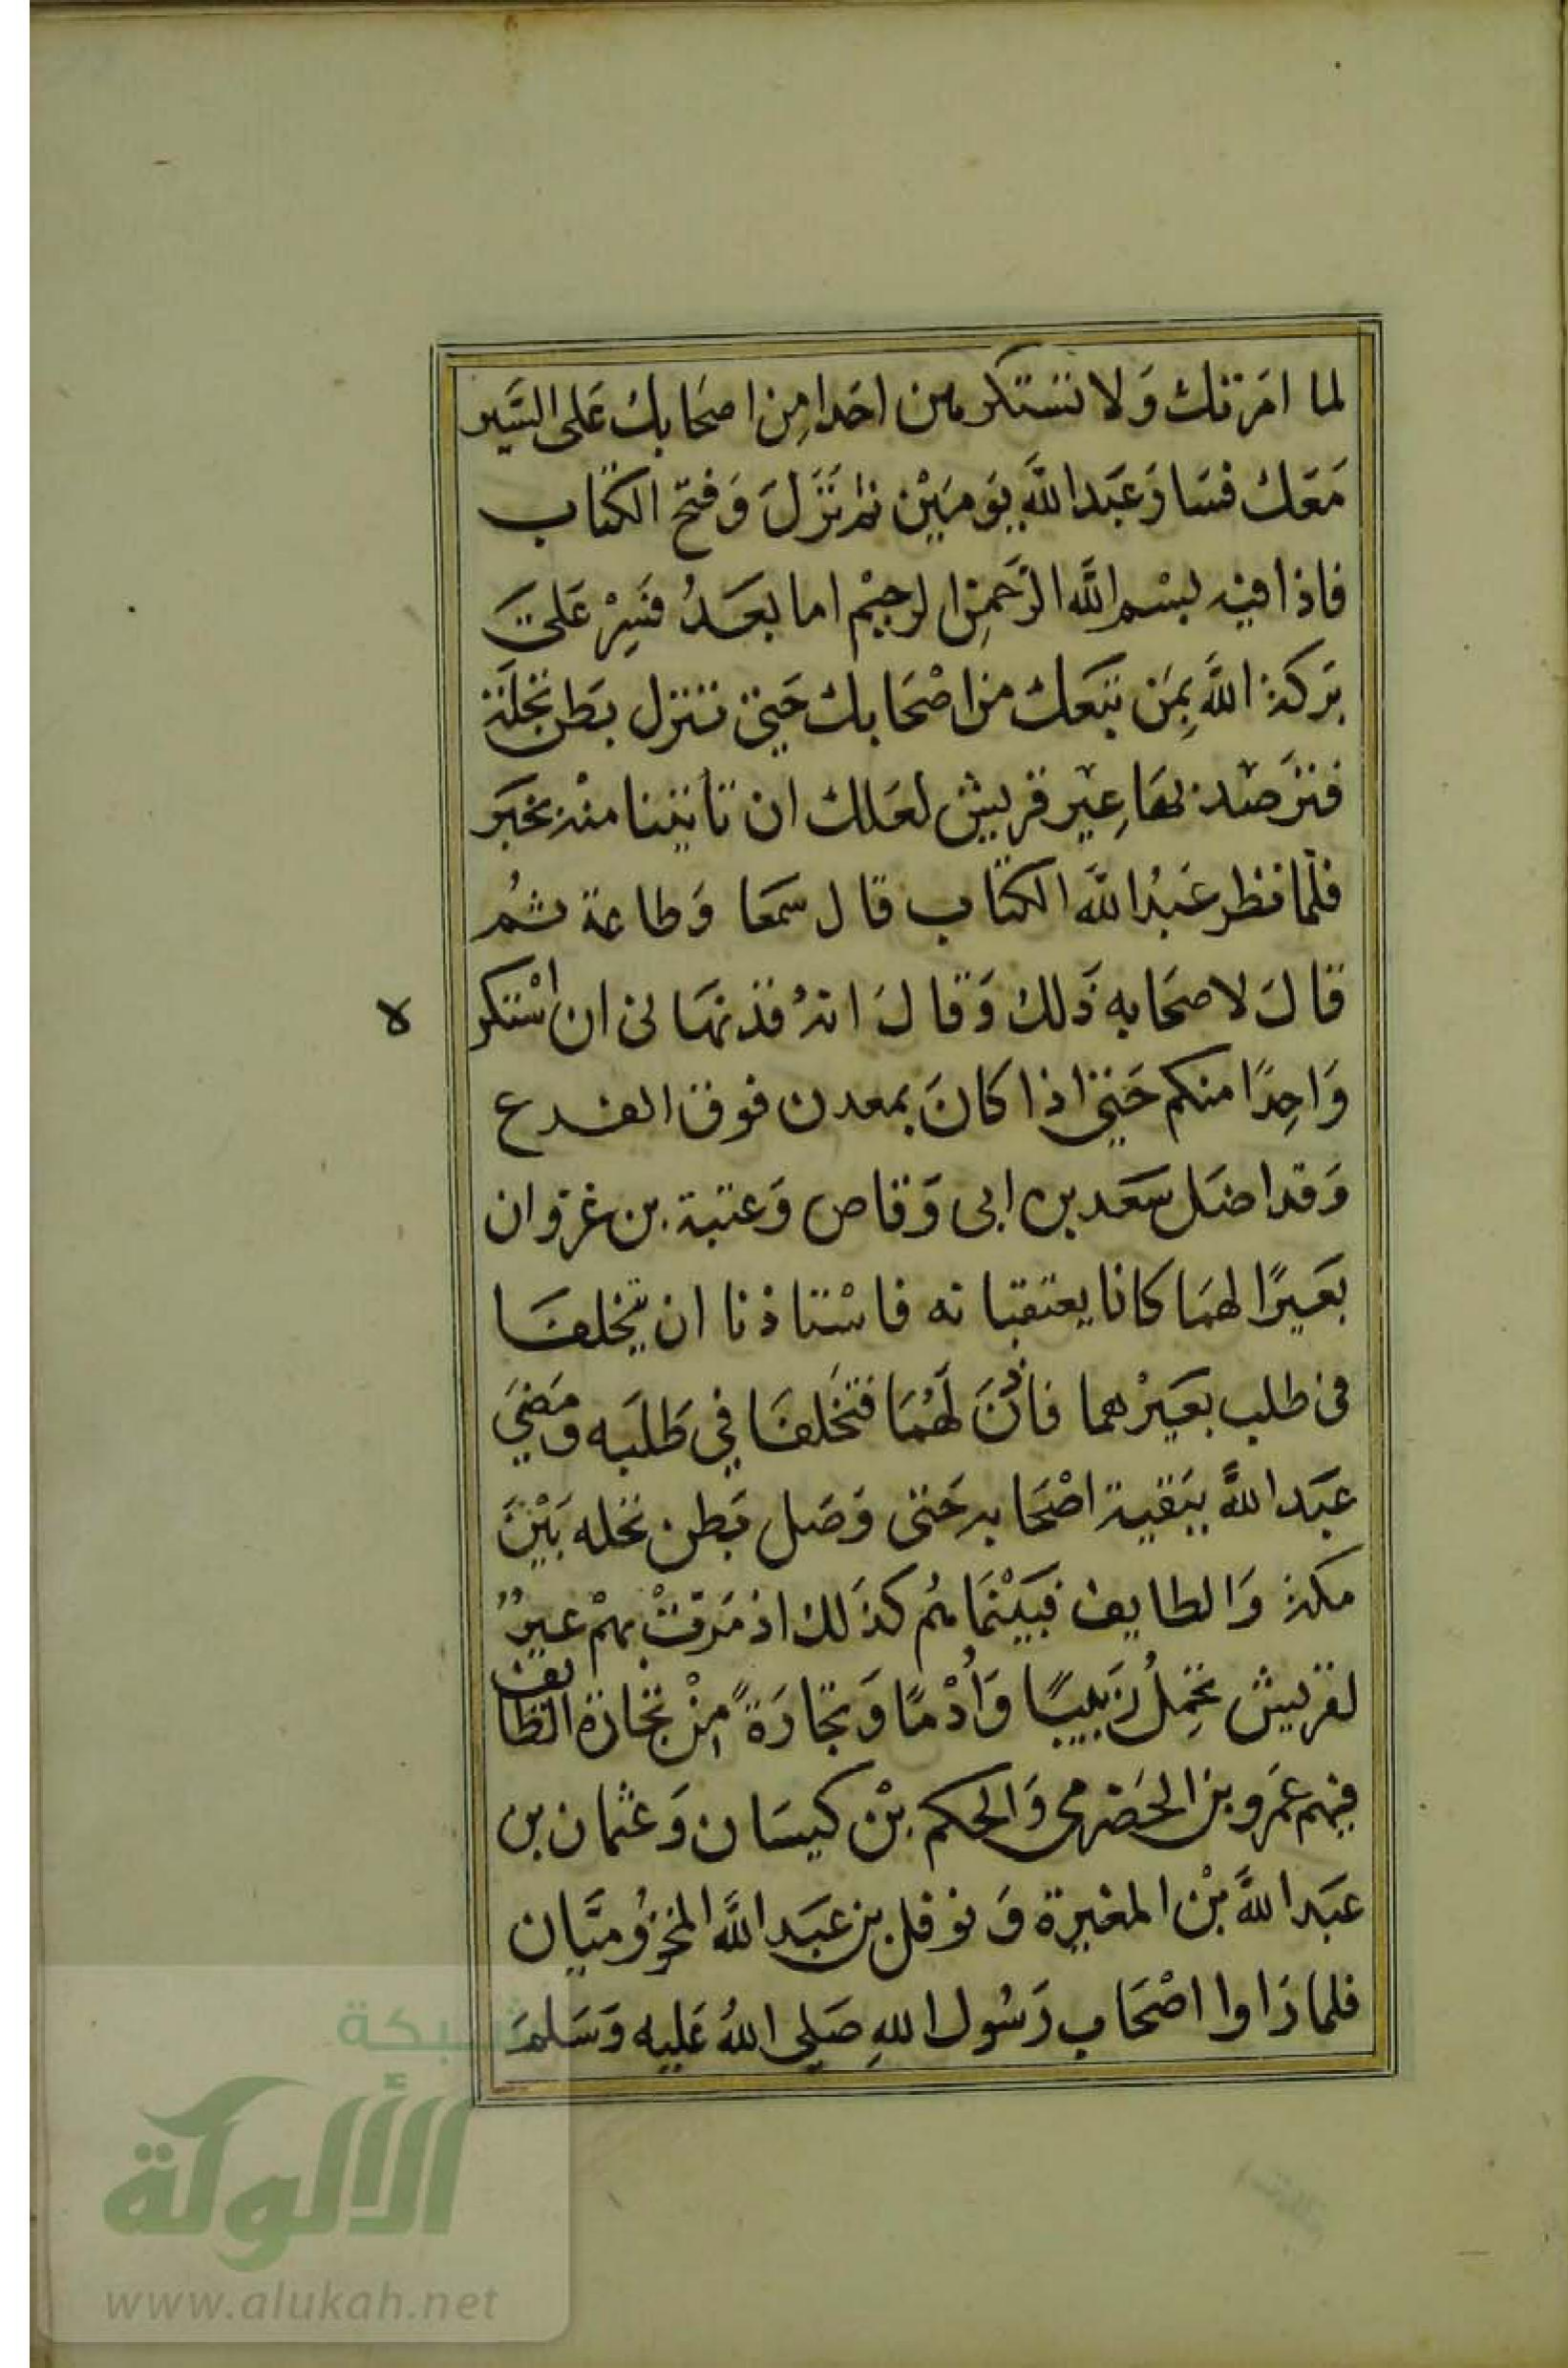 لما امَرتك وَلا تستكرهن احَدا مِن اصحَابك عَلى السَّير
مَعَك فسَارَ عَبَد اللَّه يَومَيْن ثم نَزَلَ وَفتح الكتاب
فاذا فيه بسْم اللَّه الرَّحمِن الرحِيْم اما بعَدُ فَسِرْ عَلَى
بَركة اللَّه بِمَن تبَعك من اصْحَابك حَتى تنزل بَطن نَخلَة
فترَصَد بهَا عِيْر قريش لعَلك ان تاتينا منْه بخبَر
فلمّا نظر عَبْد اللَّه الكتاب قال سمَعا وَطاعة ثُم
قالَ لاصحَابه ذَلك وَقالَ انهُ قد نهَانى ان اسْتكر
ه
وَاحِدًا منكم حَتى اذا كانَ بمعدن فوق الفرع
وَقد اضَل سَعَد بن ابى وَقاص وَعتبة بن غزوان
بعَيرًا لهمَا كانا يعتقبانه فاسْتاذنا ان يتخلفَا
فى طلب بعَيرْهما فاذنَ لَهُمَا فتخَلفَا في طَلَبَه وَمَضيَ
عَبَد اللَّه ببَقية اصْحَابه حَتى وَصَل بَطن نخله بَيْنَ
مكة وَالطايف فبَيْنَمَا هُم كذَلك اذ مَرتْ بهمْ عيرٌ
لقريش تحَمِلُ زَبيبًا وَاُدْمًا وَتجَارَةً مِنْ تجَارَة الطايف
فيهم عَمرو بن الحَضرمى وَالحكم بْن كيسَان وَعثمان بن
عَبَد اللَّه بْن المغيرة وَنوفل بن عَبَد اللَّه المخزُوميَّان
فلما رَاوا اصْحَاب رَسُول اللهِ صَلى اللهُ عَليه وَسَلمَ
شبكة
الألوكة
www.alukah.net